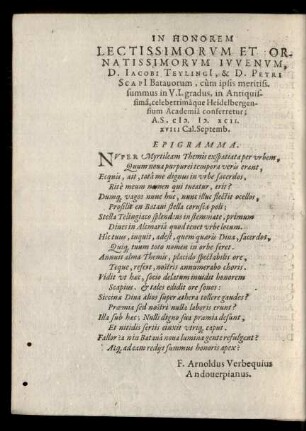 IN HONOREM
LECTISSIMORVM ET OR-
NATISSIMORVM IVVENVM,
D. IACOBI TEYLINGI, & D. PETRI
SCAPI Batauorum, cùm ipsis meritiss.
summus in V.I. gradus, in Antiquis-
simâ, celeberrimâque Heidelbergen-
sium Academiâ conferretur;
A.S. cIɔ. Iɔ. XCII.
XVIII Cal. Septemb.
EPIGRAMMA.
NVPER Myrtileam Themis exspatiata per vrbem,
Quum noua purpurei tempora veris erant,
Ecquis, ait, tota me dignus in vrbe sacerdos,
Ritè meum numen qui tueatur, erit?
Dumq, vagos nunc huc, nunc illuc flectit ocellos,
Prosilit en Bataui stella corusca poli:
Stella Telingiaco splendens in stemmate, primum
Diues in Alcmaria quod tenet vrbe locum.
Hic tuus, inquit, adest, quem quæris Diua, sacerdos,
Quiq, tuum tota nomen in orbe feret.
Annuit alma Themis, placido spectabilis ore,
Teque, refert, nostris annumerabo choris.
Vidit vt hæc, socio delatum inuidit honorem
Scapius, & tales edidit ore sonos:
Siccine Diua alios super æthera tollere gaudes?
Præmia sed nostri nulla laboris erunt?
Illa sub hæc; Nulli digno sua præmia desunt,
Et nitidis sertis cinxit vtriq, caput.
Fallor? an in Bataua noua lumina gente refulgent?
Atq, ad eam redijt summus honoris apex?
F. Arnoldus Verbequius
Andouerpianus.